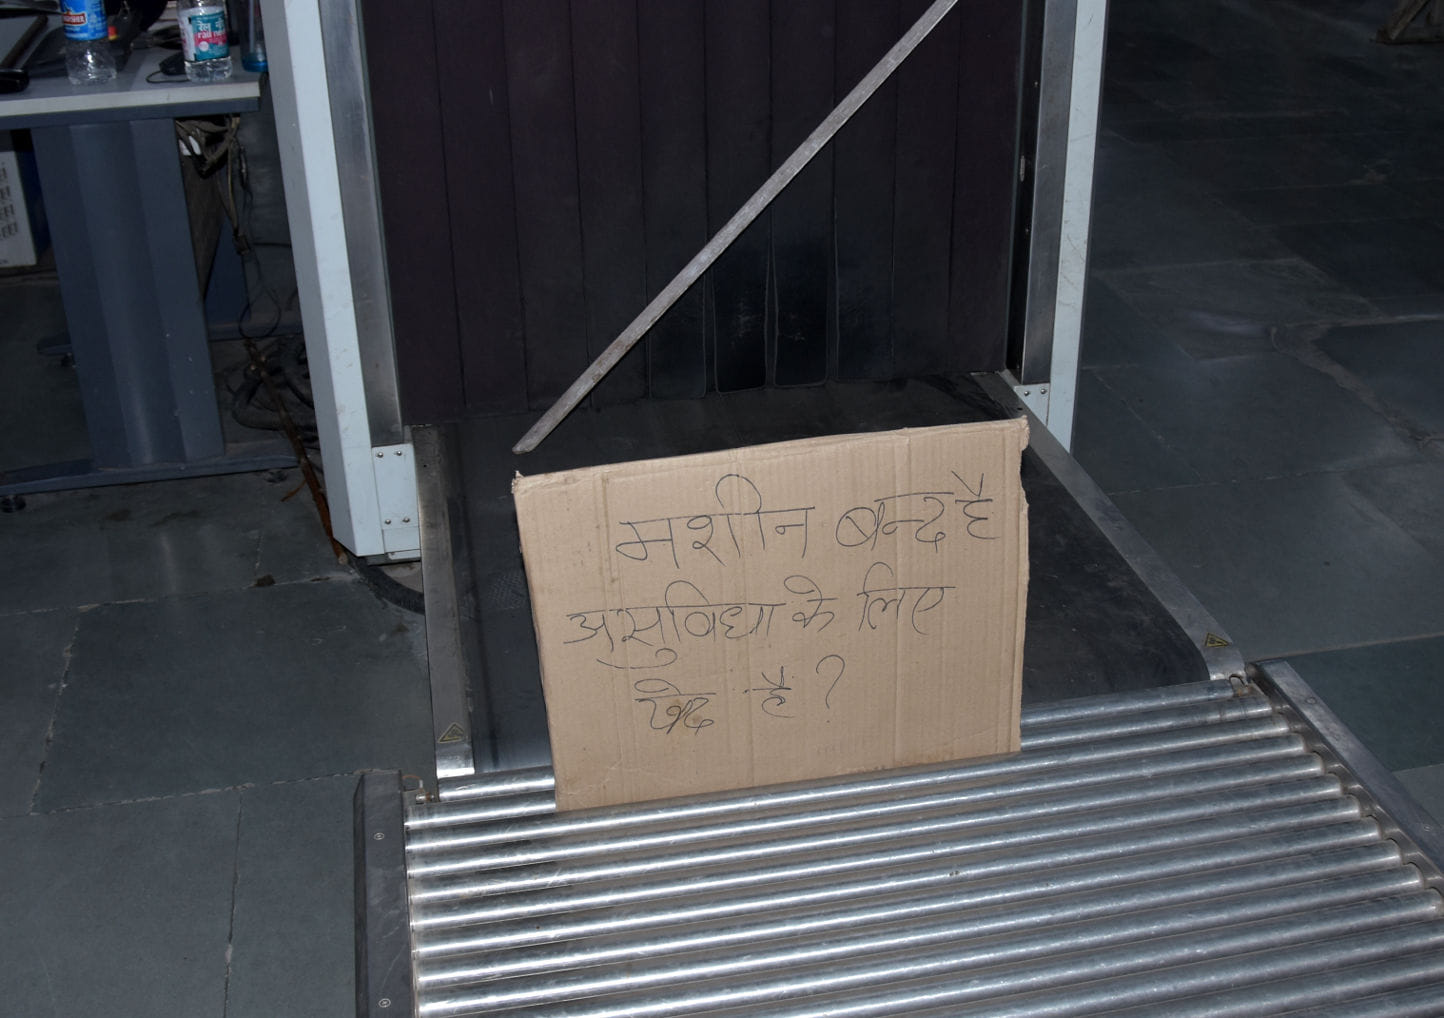 रेल नीर
rail neer
मशीन बन्द है
असुविधा के लिए
खेद है ?